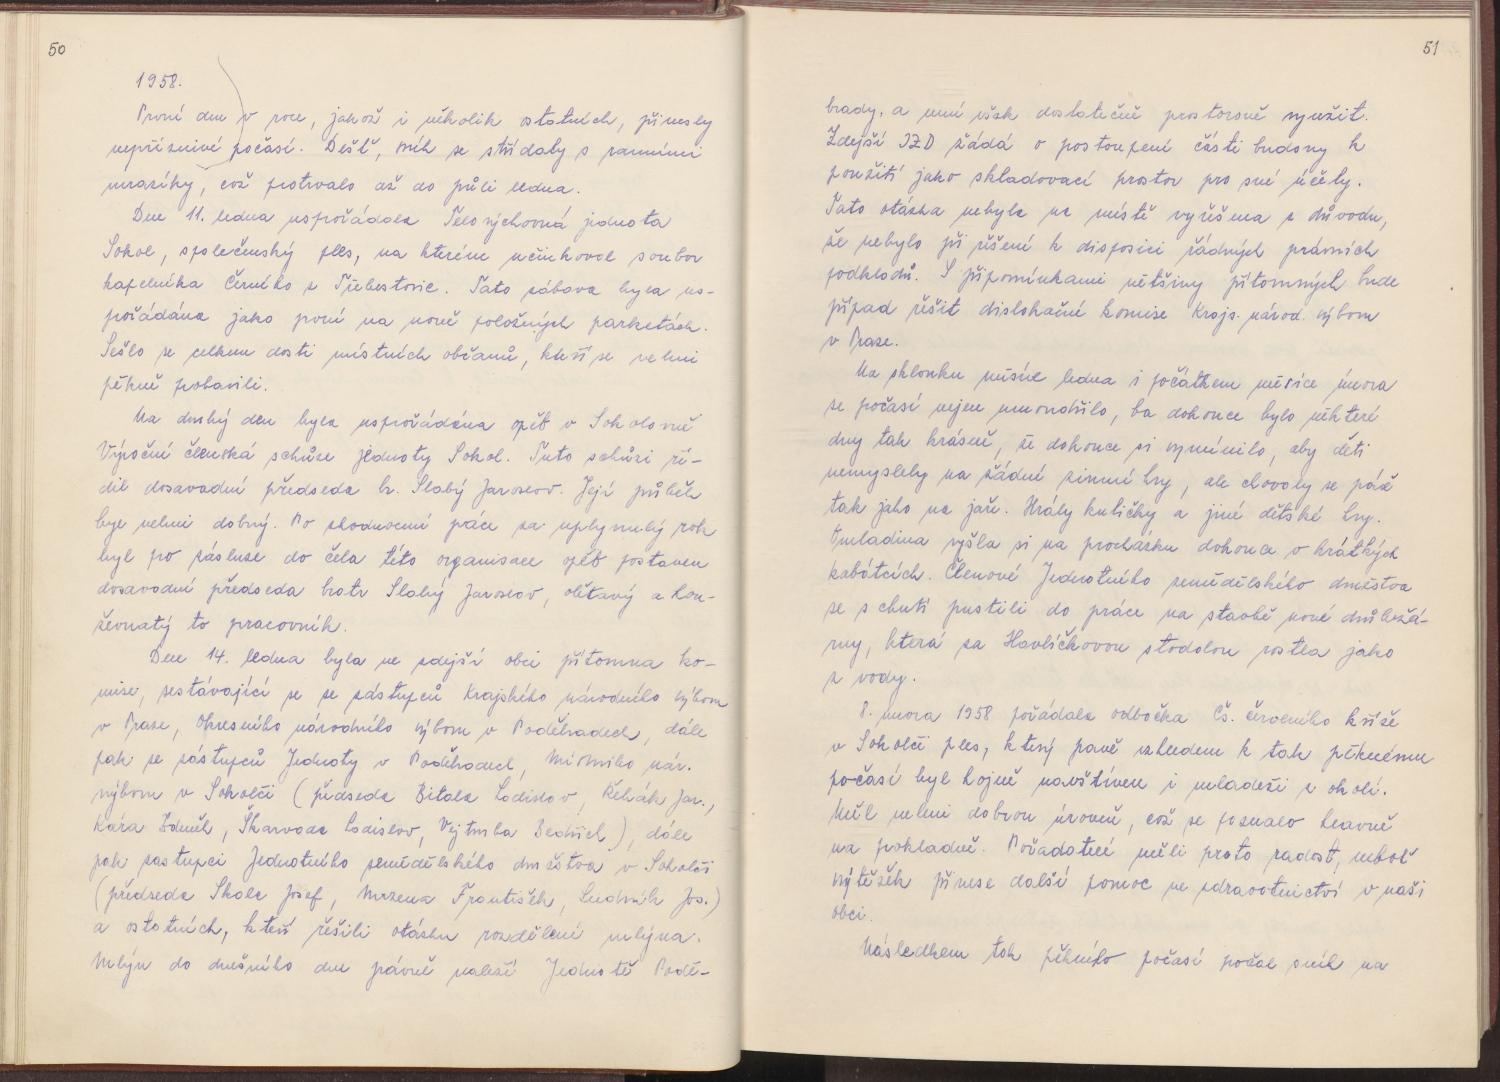 50
1958.
První den v roce, jakož i několik ostatních, přinesly
nepříznivé počasí. Déšť, sníh se střídaly s ranními
mrazíky, což potrvalo až do půli ledna.
Dne 11. ledna uspořádala Tělovýchovná jednota
Sokol, společenský ples, na kterém účinkoval soubor
kapelníka Černého z Třebestovic. Tato zábava byla us-
pořádána jako první na nově položených parketách.
Sešlo se celkem dosti místních občanů, kteří se velmi
pěkně pobavili.
Na druhý den byla uspořádána opět v Sokolovně
Výroční členská schůze jednoty Sokol. Tuto schůzi ří-
dil dosavadní předseda br. Slabý Jaroslav. Její průběh
byl velmi dobrý. Po zhodnocení práce za uplynulý rok
byl po zásluze do čela této organisace opět postaven
dosavadní předseda bratr Slabý Jaroslav, obětavý a hou-
ževnatý to pracovník.
Dne 14. ledna byla ve zdejší obci přítomna ko-
mise, sestávající se ze zástupců Krajského národního výboru
v Praze, Okresního národního výboru v Poděbradech, dále
pak ze zástupců Jednoty v Poděbradech, Místního nár.
výboru v Sokolči (předseda Bitala Ladislav, Řehák Jar.,
Kára Zdeněk, Škarvada Ladislav, Vejtruba Bedřich), dále
pak zástupci Jednotného zemědělského družstva v Sokolči
(předseda Skala Josef, Mrzena František, Ludvík Jos.)
a ostatních, kteří řešili otázku rozdělení mlýna.
Mlýn do dnešního dne právně naleží Jednotě Podě-
51
brady, a není však dostatečně prostorově využit.
Zdejší JZD žádá o postoupení části budovy k
použití jako skladovací prostor pro své účely.
Tato otázka nebyla na místě vyřešena z důvodu,
že nebylo při řešení k disposici řádných právních
podkladů. S připomínkami většiny přítomných bude
případ řešit dislokační komise Krajs. národ. výboru
v Praze.
Na sklonku měsíce ledna i počátkem měsíce února
se počasí nejen umoudřilo, ba dokonce bylo některé
dny tak krásně, že dokonce si vymínilo, aby děti
nemyslely na žádné zimní hry, ale chovaly se páč
tak jako na jaře. Hrály kuličky a jiné dětské hry.
Omladina vyšla si na procházku dokonce v krátkých
kabátcích. Členové Jednotného zemědělského družstva
se s chutí pustili do práce na stavbě nové drůbežár-
ny, která za Havlíčkovou stodolou rostla jako
z vody.
8. února 1958 pořádala odbočka Čs. červeného kříže
v Sokolči ples, který pavě vzhledem k tak pěknému
počasí byl hojně navštíven i mládeží z okolí.
Měl velmi dobrou úroveň, což se poznalo hlavně
na pokladně. Pořadatelé měli proto radost, neboť
výtěžek přinese další pomoc ve zdravotnictví v naší
obci.
Následkem tak pěkného počasí počal sníh na